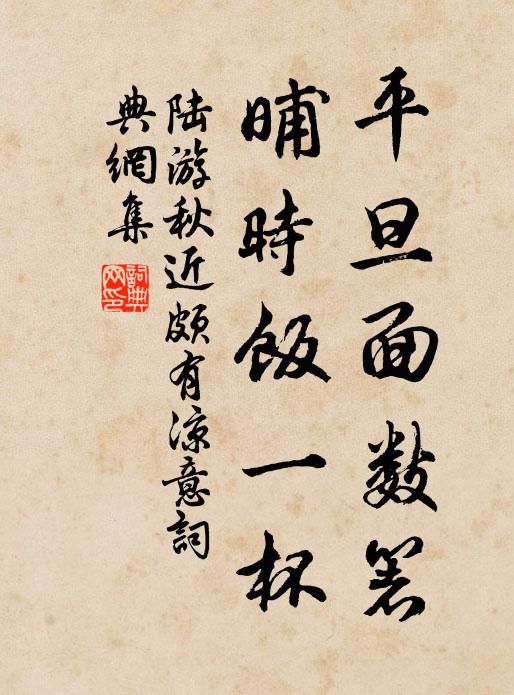 平旦面數箸
晡時飯一杯
陆游秋近頗有涼意詞
典網集
詞典网印